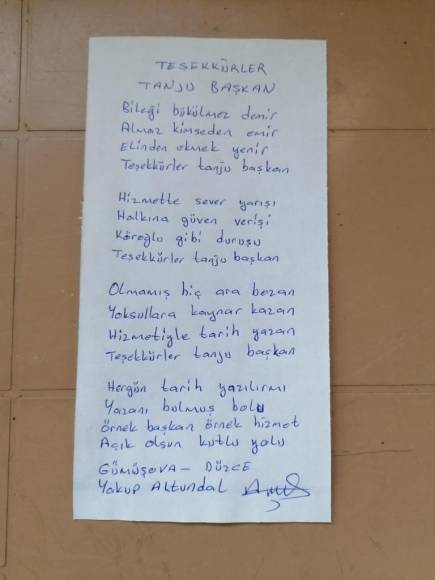 TEŞEKKÜRLER
TANJU BAŞKAN
Bileği bükülmez demir
Almaz kimseden emir
Elinden ekmek yenir
Teşekkürler tanju başkan
Hizmette sever yarışı
Halkına güven verişi
Köroğlu gibi duruşu
Teşekkürler tanju başkan
Olmamış hiç ara bozan
Yoksullara kaynar kazan
Hizmetiyle tarih yazan
Teşekkürler tanju başkan
Hergün tarih yazılırmı
Yazanı bulmuş bolu
örnek başkan örnek hizmet
Açık olsun kutlu yolu
GÜMÜŞOVA - DÜZCE
YAKUP ALTUNDAL